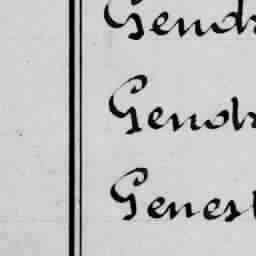 Gendr
Gendr
Genest